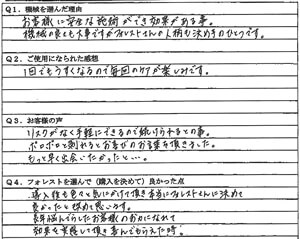 Q1. 機械を選んだ理由
お客様に安全な施術ができ効果がある事。
機械の良さも大事ですがフォレストさんの人柄も決めてのひとつです。
Q2. ご使用になられた感想
1回でもうすくなるので毎回のケアが楽しみです。
Q3. お客様の声
リスクがなく手軽にできるので続けられるとの事。
ポロポロと剥れるとお喜びのお言葉を頂きました。
もっと早く出会いたかったと…。
Q4. フォレストを選んで(購入を決めて)良かった点
導入後も色々と気にかけて頂き本当にフォレストさんに決めて
良かったと改めて思います。
長年悩んでらしたお客様のお力になれて
効果を実感して頂き喜んでもらえた時。